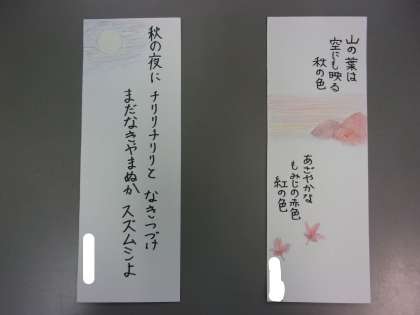 山の葉は
空にも映る
秋の色
あざやかな
もみじの赤色
紅の色
秋の夜に チリリチリリと なきつづけ
まだなきやまぬか スズムシよ